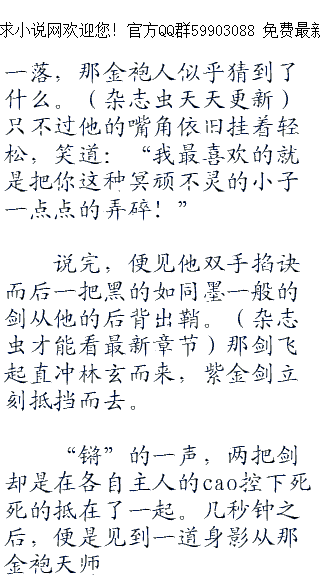 求小说网欢迎您！官方QQ群59903088 免费最新
一落，那金袍人似乎猜到了
什么。（杂志虫天天更新）
只不过他的嘴角依旧挂着轻
松，笑道：“我最喜欢的就
是把你这种冥顽不灵的小子
一点点的弄碎！”
说完，便见他双手掐诀
而后一把黑的如同墨一般的
剑从他的后背出鞘。（杂志
虫才能看最新章节）那剑飞
起直冲林玄而来，紫金剑立
刻抵挡而去。
“锵”的一声，两把剑
却是在各自主人的cao控下死
死的抵在了一起。几秒钟之
后，便是见到一道身影从那
金袍天师